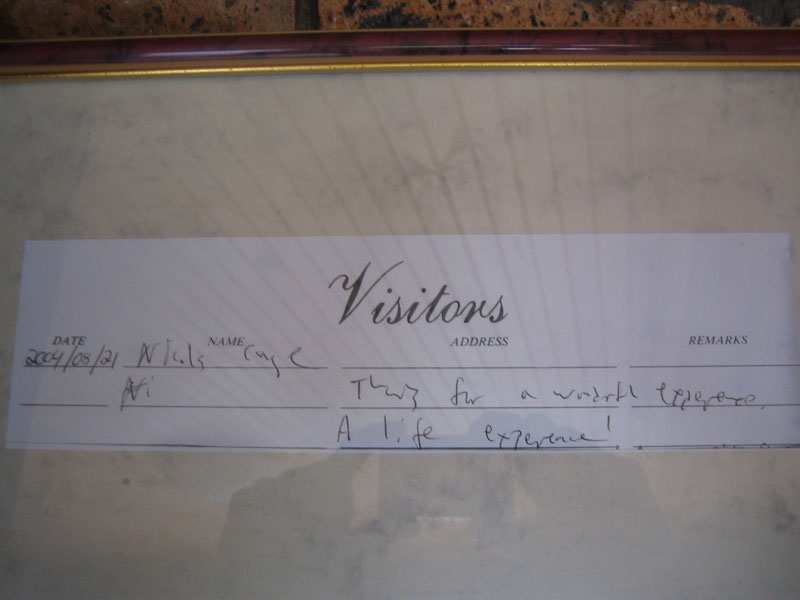 Visitors
DATE NAME ADDRESS REMARKS
2004/08/21 Nicolas Cage
Ni Thanks for a wonderful experience.
A life experience!